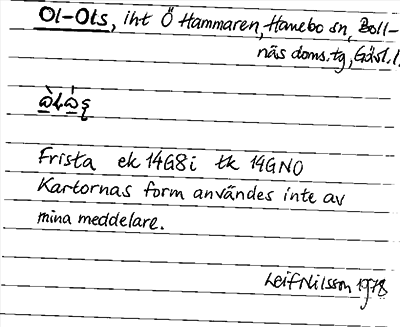 Ol-Ots, iht Ö Hammaren, Hanebo sn, Boll-
näs doms.tg, Gävl. l.
Frista ek 14G8i tk 14GNO
Kartornas form användes inte av
mina meddelare.
Leif Nilsson 1978